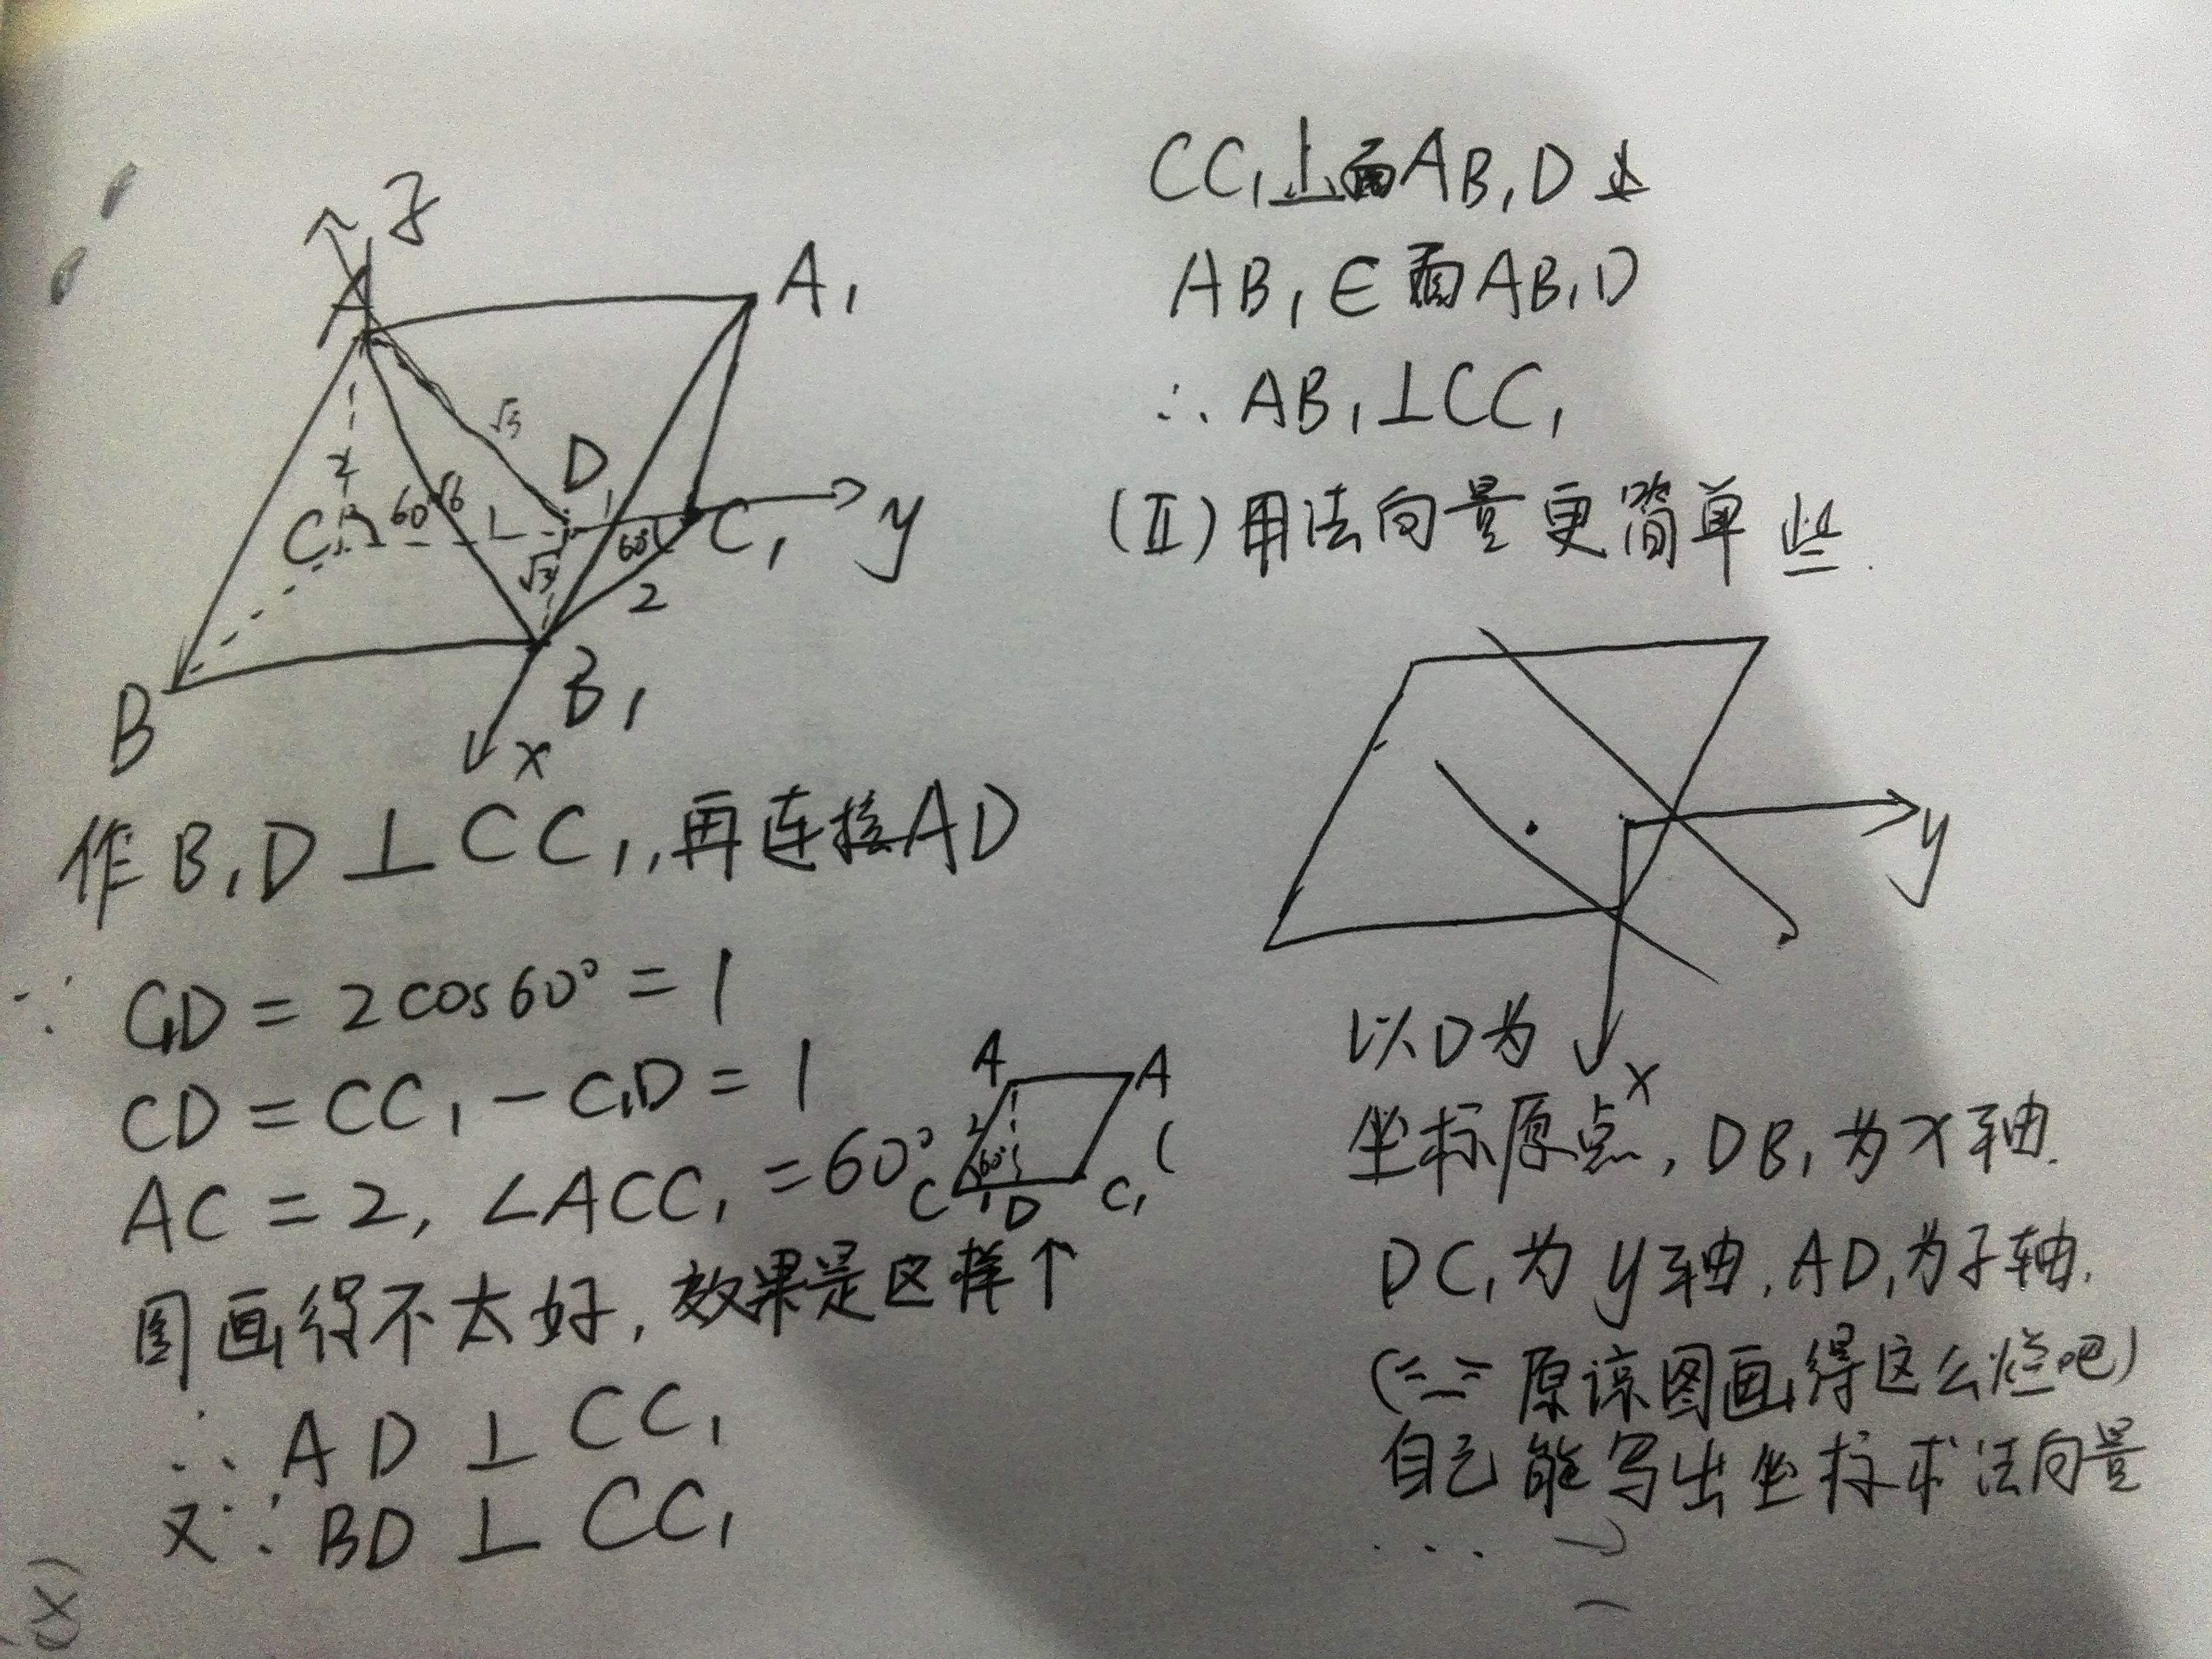 z
A
A₁
√3
2
D
C
60°
√6
1
1
60°
C₁
y
√3
2
B
B₁
x
作B₁D⊥CC₁,再连接AD
∵ C₁D=2cos60°=1
CD=CC₁-C₁D=1
AC=2,∠ACC₁=60°
A
A
2
60°
C
1
D
C₁
图画得不太好,效果是这样↑
∴AD⊥CC₁
又∵BD⊥CC₁
CC₁⊥面AB₁D
AB₁∈面AB₁D
∴AB₁⊥CC₁
(Ⅱ)用法向量更简单些.
y
x
以D为
坐标原点,DB₁为x轴.
DC₁为y轴,AD,为z轴.
(=_=原谅图画得这么烂吧)
自己能写出坐标求法向量
...